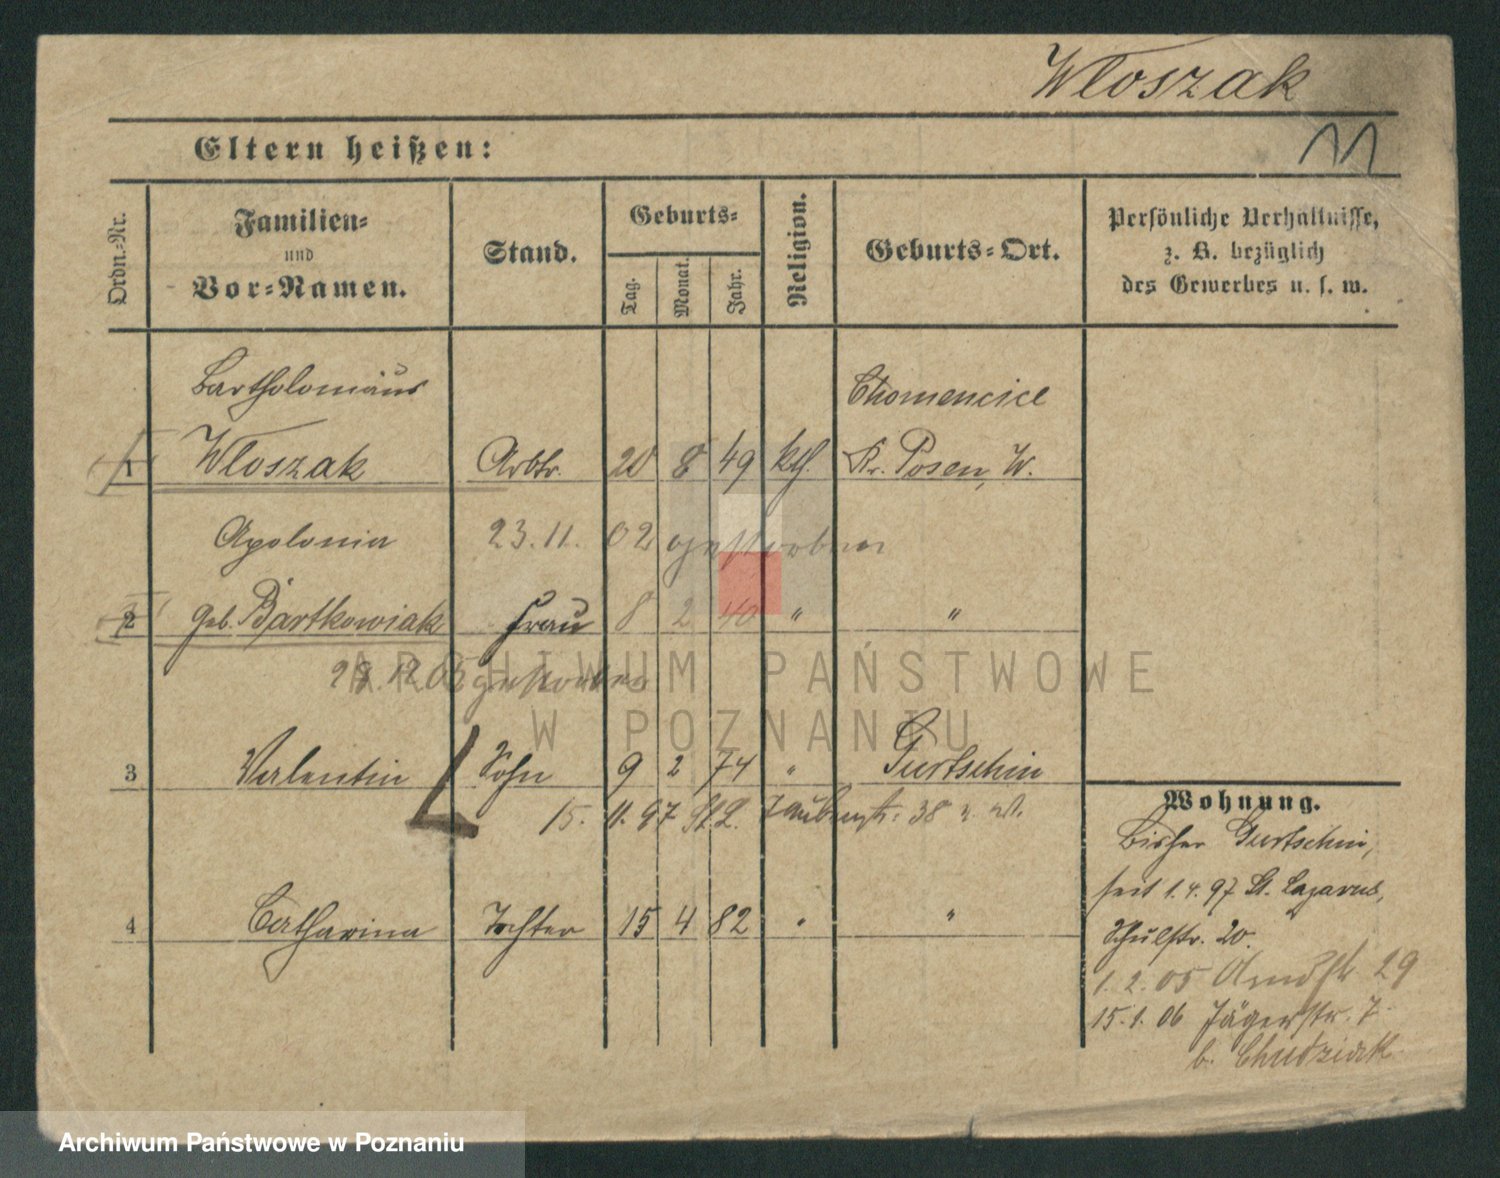 Włoszak
11
Eltern heißen:
Ordn.-Nr.
Familien-
und
Vor-Namen.
Stand.
Geburts-
Tag.
Monat.
Jahr.
Religion.
Geburts-Ort.
Persönliche Verhältnisse,
z. B. bezüglich
des Gewerbes u. s. w.
Bartholomäus Chomencice
1 Włoszak Arbtr. 20 8 49 kth. Kr. Posen, W.
Apolonia 23. 11. 02 gestorben
2 geb. Bartkowiak Frau 8 2 40 " "
28. 12 05 gestorben
ARCHIWUM PAŃSTWOWE
W POZNANIU
3 Valentin Sohn 9 2 74 " Gurtschin
15. 11. 97 St. L. 38
4 Catharina Tochter 15 4 82 " "
Wohnung.
Bisher Gurtschin,
seit 1.4.97 St. Lazarus,
Schulstr. 20.
1. 2. 05 29
15. 1. 06 Jägerstr. 7
b. Chudziak
Archiwum Państwowe w Poznaniu